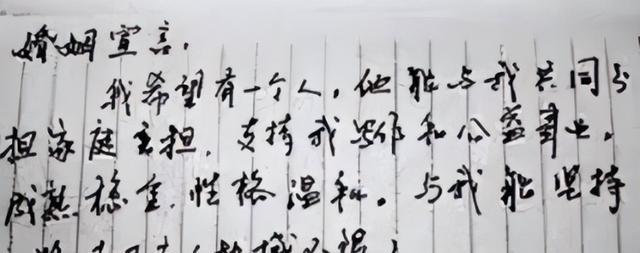 婚姻宣言。
我希望有一个人，他能与我共同分
担家庭重担，支持我写作和公益事业。
成熟稳重，性格温和。与我能坚持